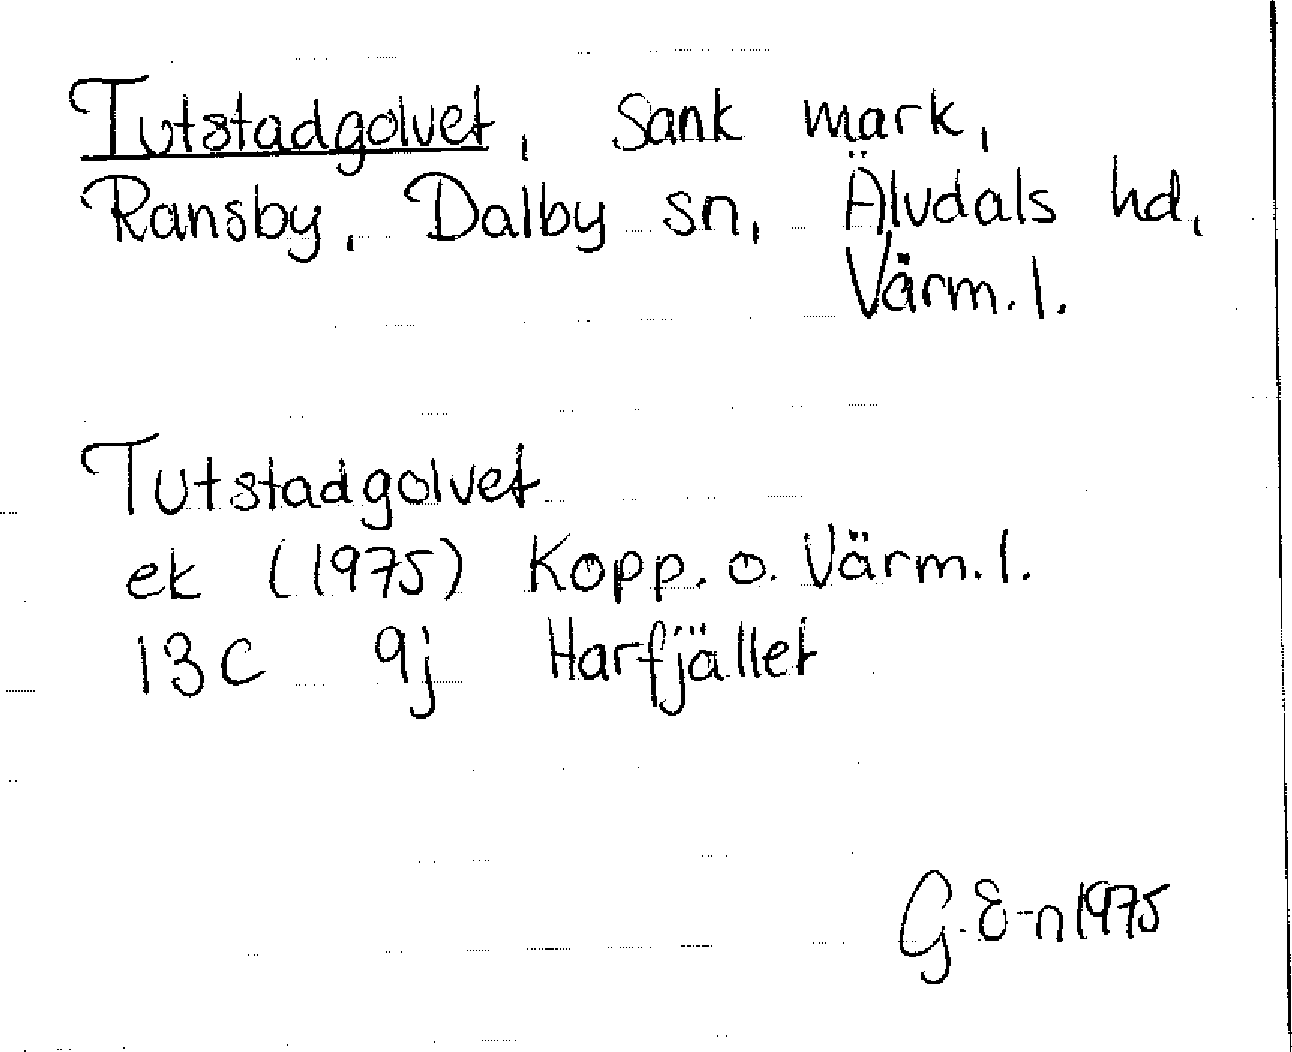 Tutstadgolvet, Sank mark,
Ransby, Dalby sn, Älvdals hd,
Värm. l.
Tutstadgolvet
ek (1975) Kopp. o. Värm. l.
13C 9j Harfjället
G. E-n 1975